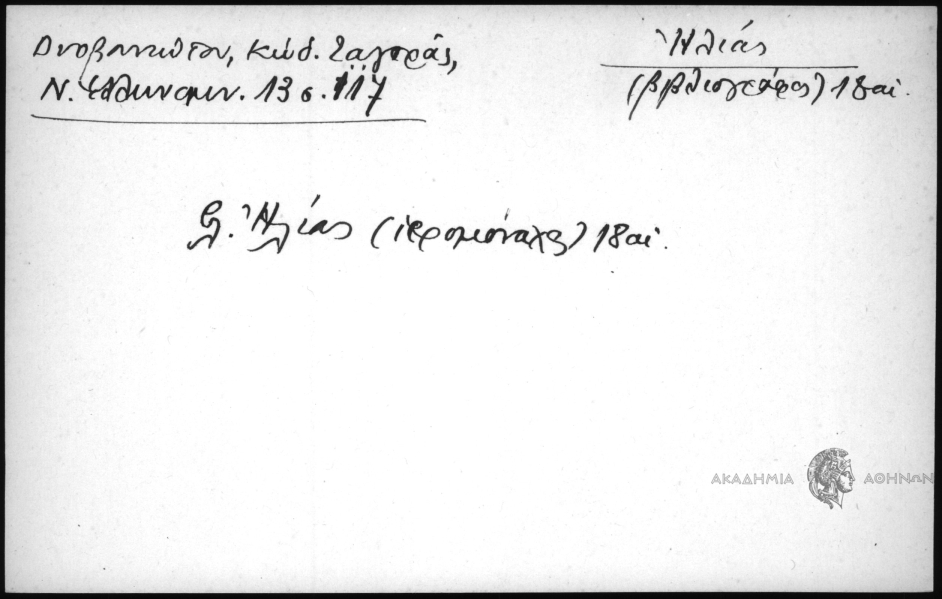 Κώδ. Ζαγορᾶς,
Ν. Ἑλληνομν. 13 σ. 117
Ἠλίας
(βιβλιογράφος) 18 αἰ.
βλ. Ἠλίας (ἱερομόναχος) 18 αἰ.
ΑΚΑΔΗΜΙΑ ΑΘΗΝΩΝ